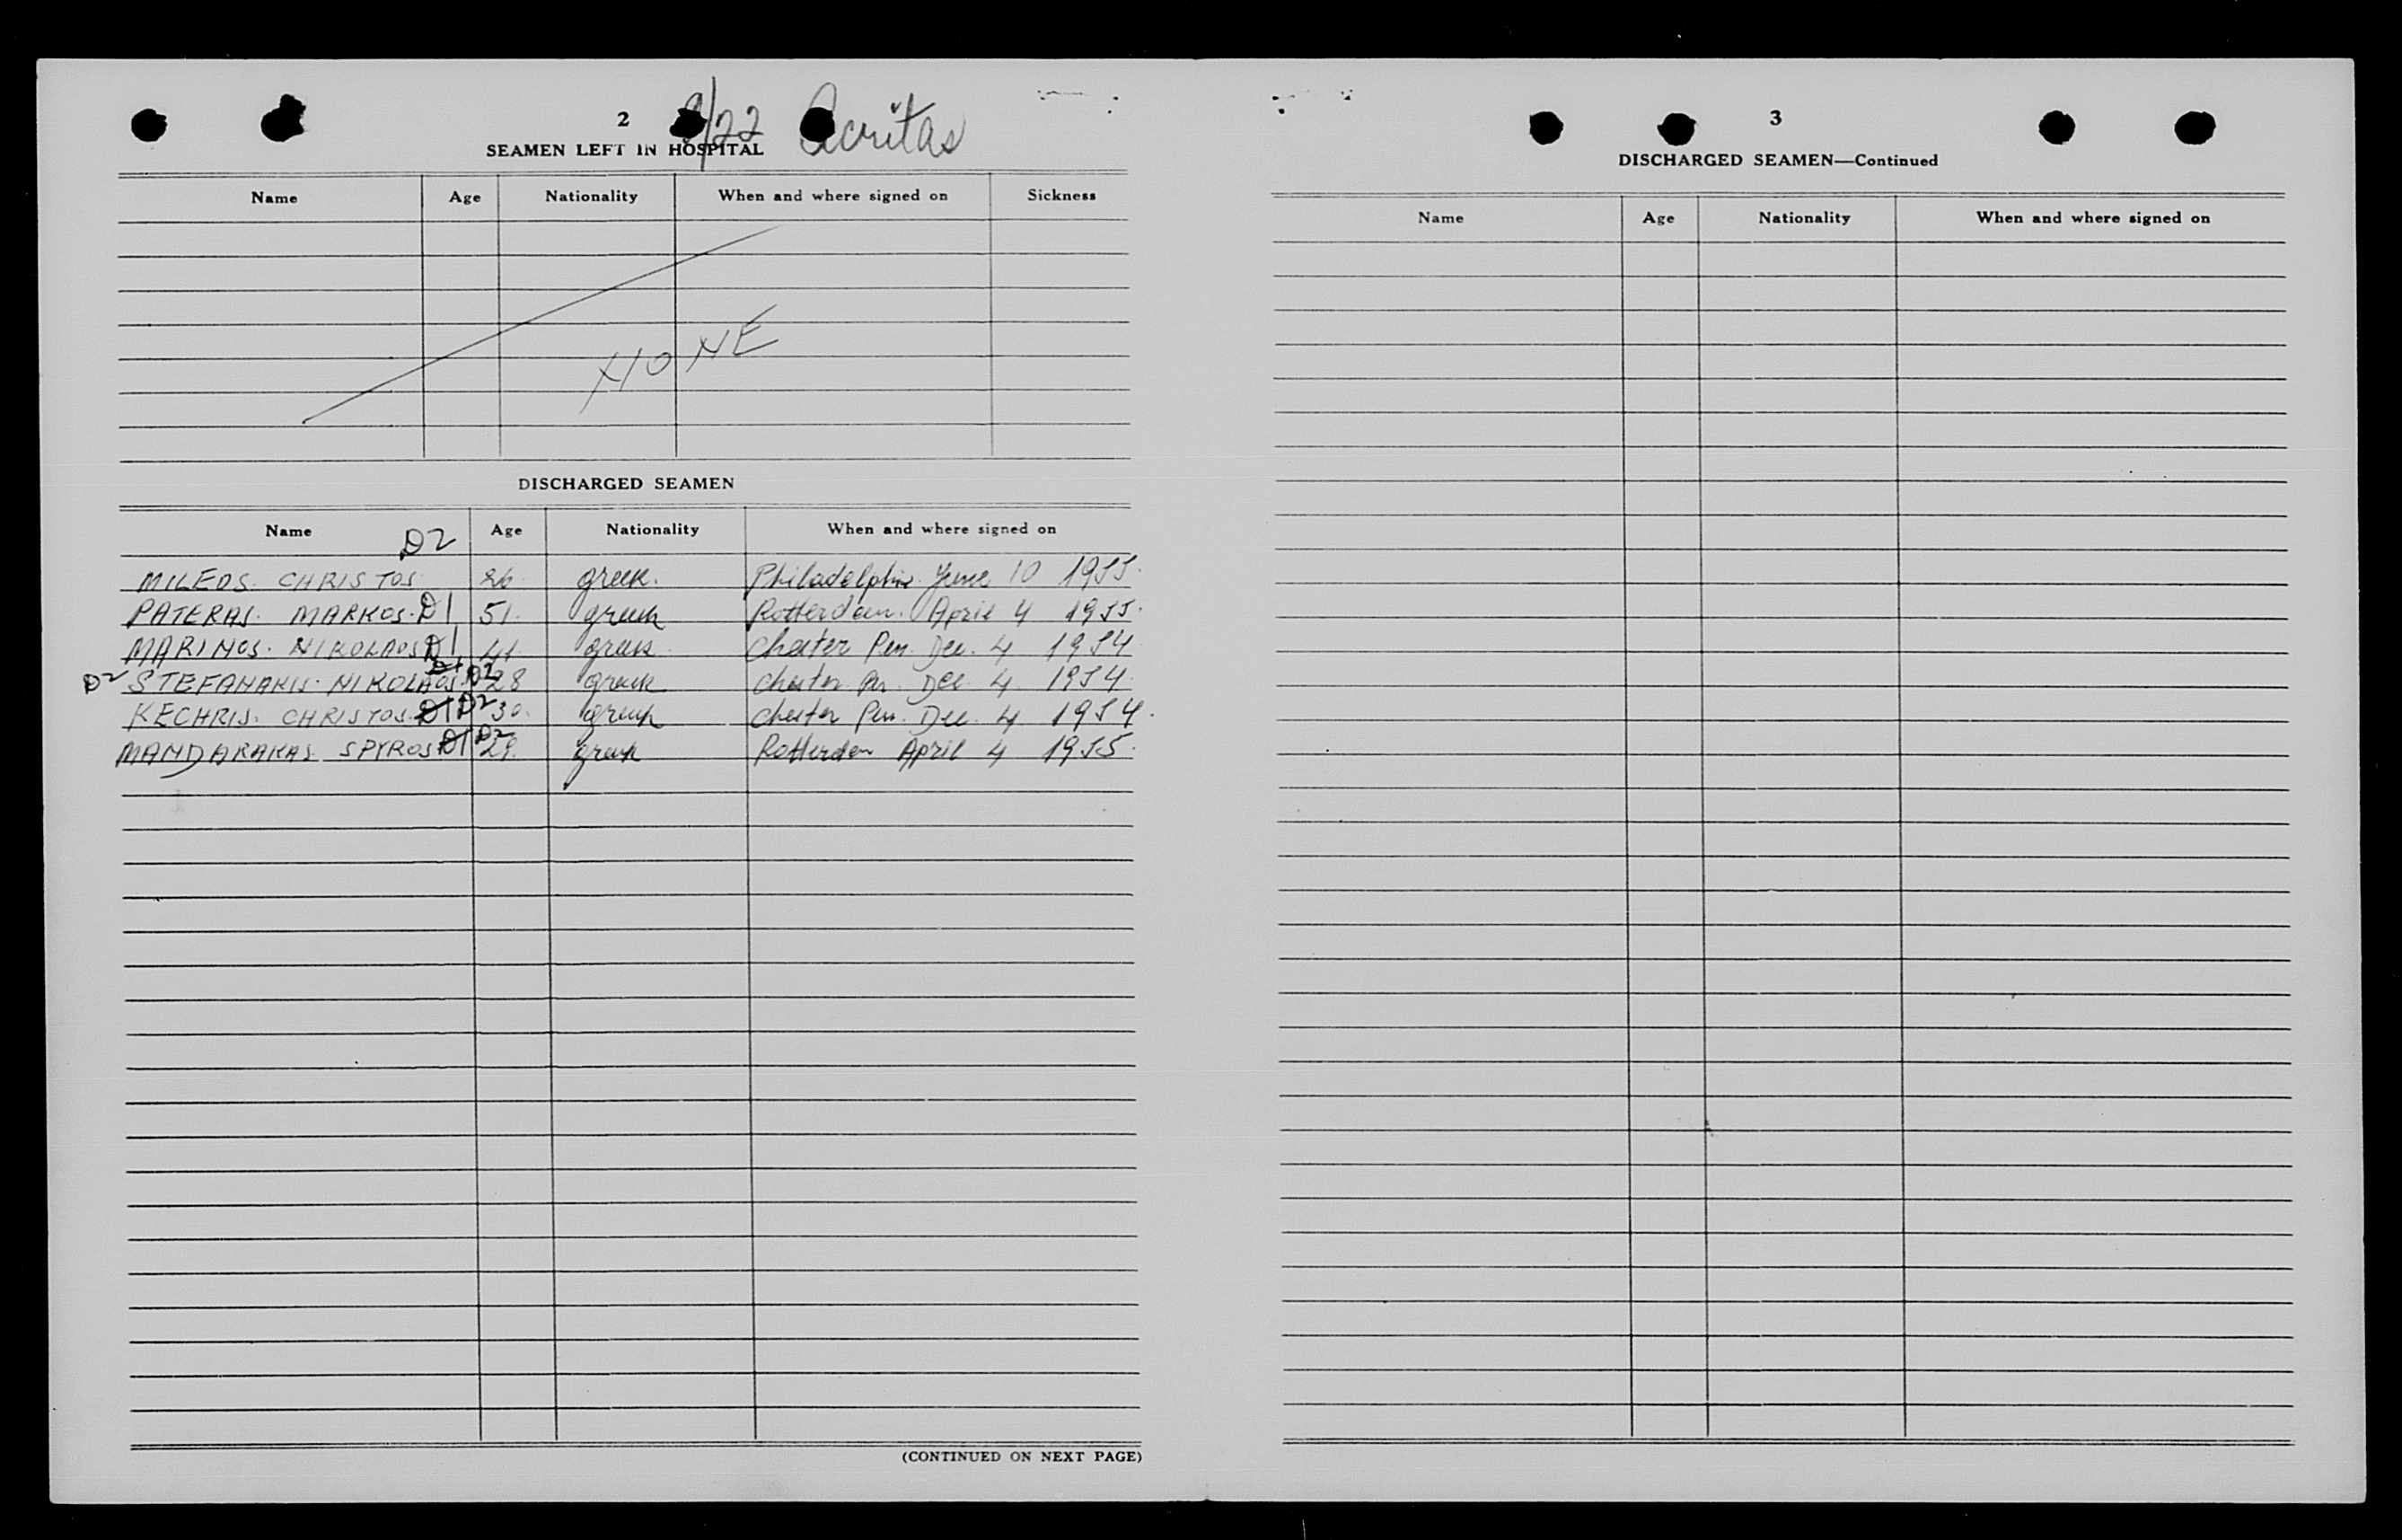 2 9/22 Acritas
SEAMEN LEFT IN HOSPITAL
Name Age Nationality When and where signed on Sickness
NONE
DISCHARGED SEAMEN
Name D2 Age Nationality When and where signed on
MILEOS. CHRISTOS. 26. greek. Philadelphia June 10 1955.
PATERAS. MARKOS. D1 51. greek Rotterdam. April 4 1955.
MARINOS. NIKOLAOS D1 41 greek Chester Pen. Dec. 4 1954
D2 STEFANAKIS. NIKOLAOS. D1 D2 28 greek Chester Pen. Dec 4 1954.
KECHRIS. CHRISTOS. D1 D2 30. greek Chester Pen. Dec. 4 1954.
MANDARAKAS SPYROS D1 D2 29. greek Rotterdam April 4 1955.
(CONTINUED ON NEXT PAGE)
3
DISCHARGED SEAMEN—Continued
Name Age Nationality When and where signed on